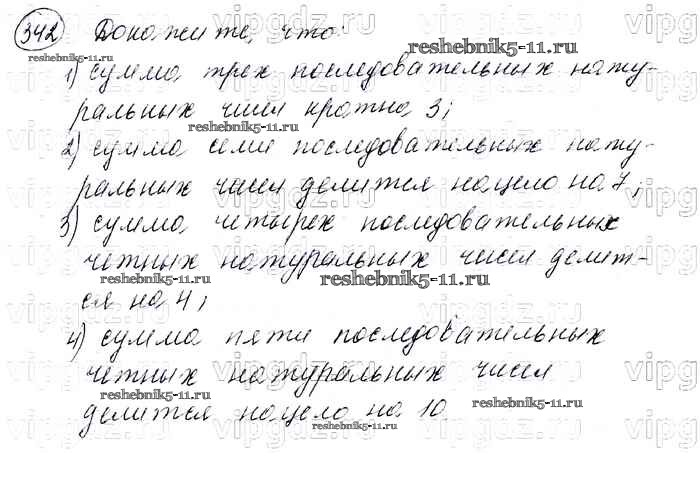 342 Докажите, что:
reshebnik5-11.ru
1) сумма трех последовательных нату-
reshebnik5-11.ru
ральных чисел кратна 3;
reshebnik5-11.ru
2) сумма семи последовательных нату-
ральных чисел делится нацело на 7;
3) сумма четырех последовательных
четных натуральных чисел делит-
reshebnik5-11.ru reshebnik5-11.ru
ся на 4;
4) сумма пяти последовательных
четных натуральных чисел
reshebnik5-11.ru
делится нацело на 10
reshebnik5-11.ru
vipgdz.ru